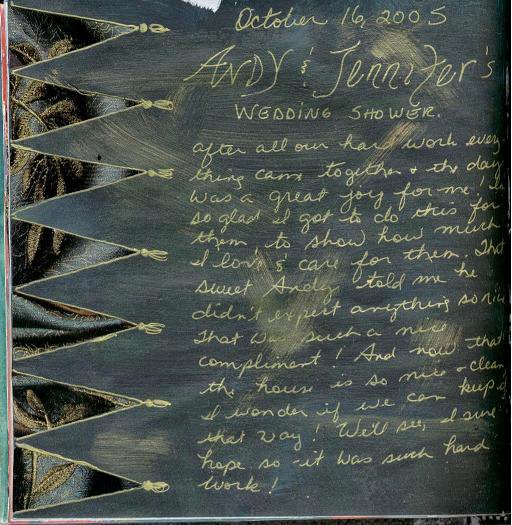 October 16, 2005
ANDY & Jennifer's
WEDDING SHOWER.
after all our hard work every
thing came together & the day
was a great joy for me. I am
so glad I got to do this for
them to show how much
I love & care for them. That
sweet Andy told me he
didn't expect anything so nice
That was such a nice
compliment! And now that
the house is so nice & clean
I wonder if we can keep it
that way! We'll see, I sure
hope so - it was such hard
work!